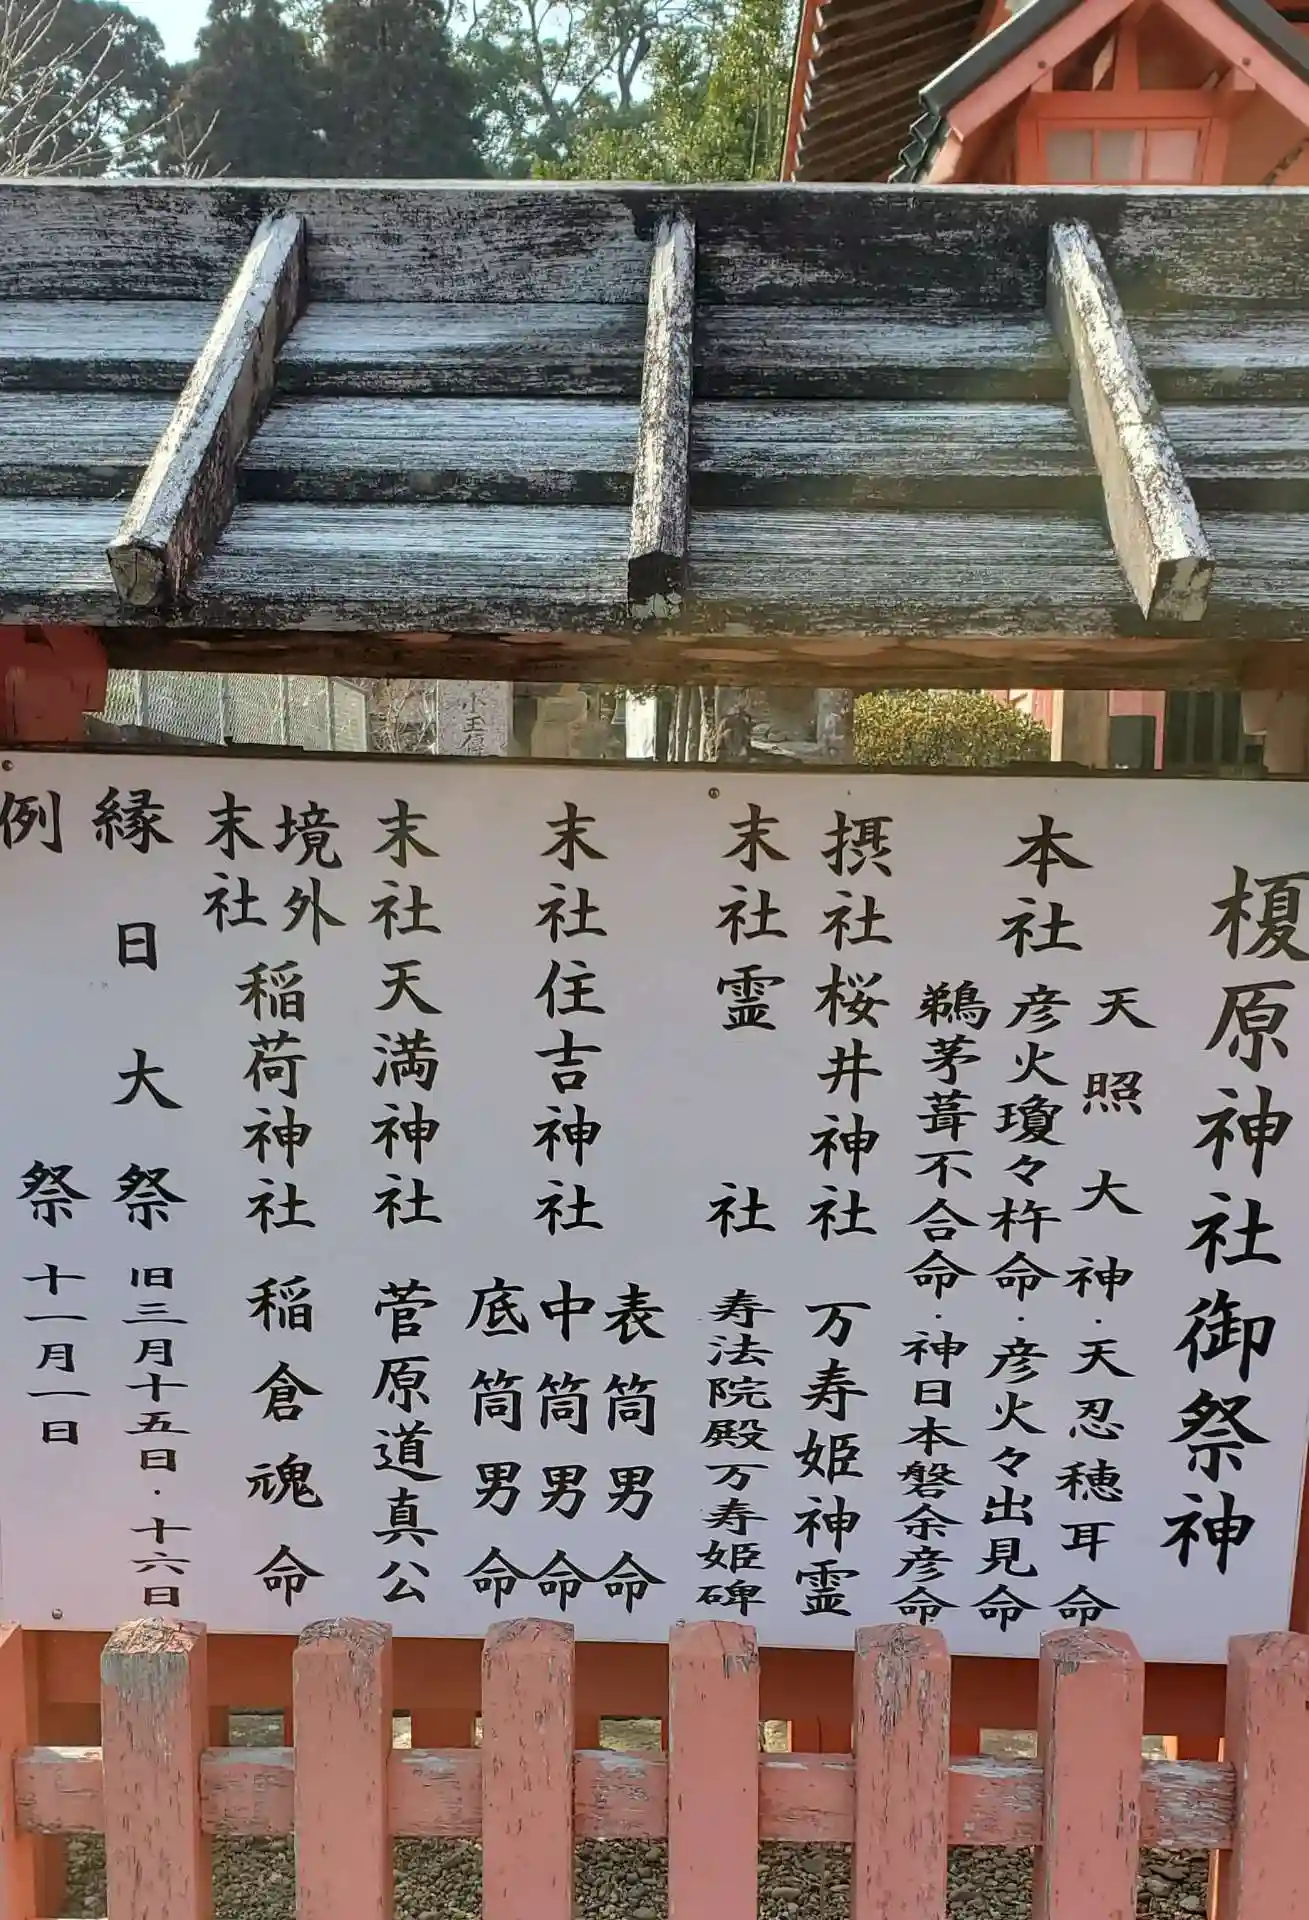 榎原神社御祭神
本社
天照大神・天忍穂耳命
彦火瓊々杵命・彦火々出見命
鵜茅葺不合命・神日本磐余彦命
摂社桜井神社 万寿姫神霊
末社霊社 寿法院殿万寿姫碑
末社住吉神社
表筒男命
中筒男命
底筒男命
末社天満神社 菅原道真公
境外
末社
稲荷神社 稲倉魂命
縁日大祭 旧三月十五日・十六日
例祭 十一月一日